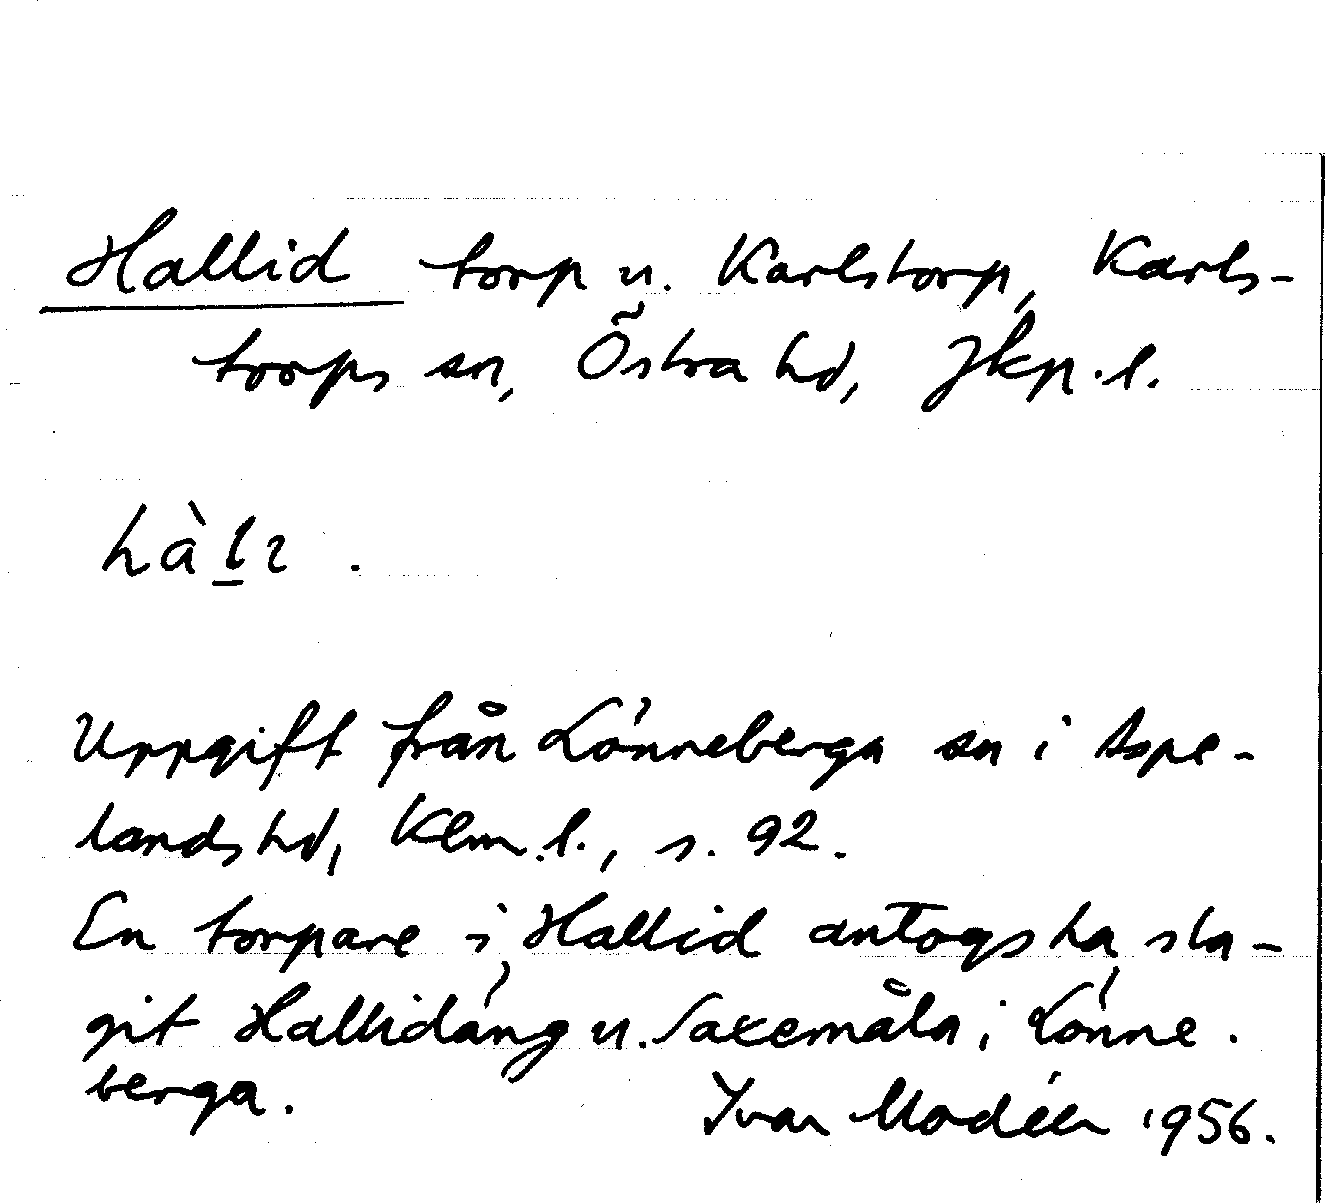 Hallid torp u. Karlstorp, Karls-
torps sn, Östra hd, Jkp. l.
hàl̲ı .
Uppgift från Lönneberga sn i Aspe-
lands hd, Klm. l., s. 92.
En torpare i Hallid antogs ha sla-
git Hallidäng u. Saxemåla i Lönne-
berga.
Ivar Modéer 1956.